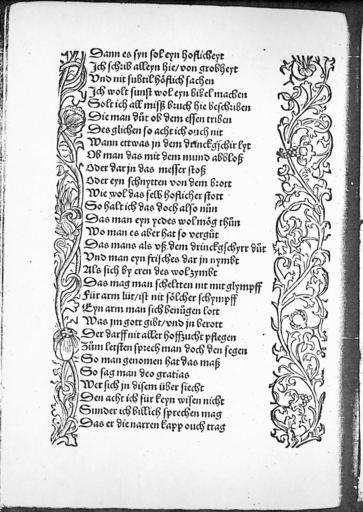 Dann es syn sol eyn hoflicheyt
Jch schrib alleyn hie/von grobheyt
Vnd nit subtil höflich sachen
Jch wolt sunst wol eyn bibel machen
Solt ich all mißbruch hie beschriben
Die man důt ob dem essen triben
Des glichen so acht ich ouch nit
Wann ettwas jn dem drinckgschir lyt
Ob man das mit dem mund abbloß
Oder dar jn das messer stoß
Oder eyn schnytten von dem brott
Wie wol das selb hoflicher stott
So halt ich das doch also nůn
Das man eyn yedes wol mög thůn
Wo man es aber hat so vergůt
Das mans als vß dem drinckgschyrr důt
Vnd man eyn frisches dar jn nymbt
Als sich by eren des wol zymbt
Das mag man scheltten nit mit glympff
Für arm lüt/ist nit sölcher schympff
Eyn arm man sich benügen lott
Was jm gott gibt/vnd jn berott
Der darff nit aller hoffzucht pflegen
Zům letsten sprech man doch den segen
So man genomen hat das maß
So sag man deo gratias
Wer sich jn disem über sicht
Den acht ich für keyn wisen nicht
Sunder ich billich sprechen mag
Das er die narren kapp ouch trag